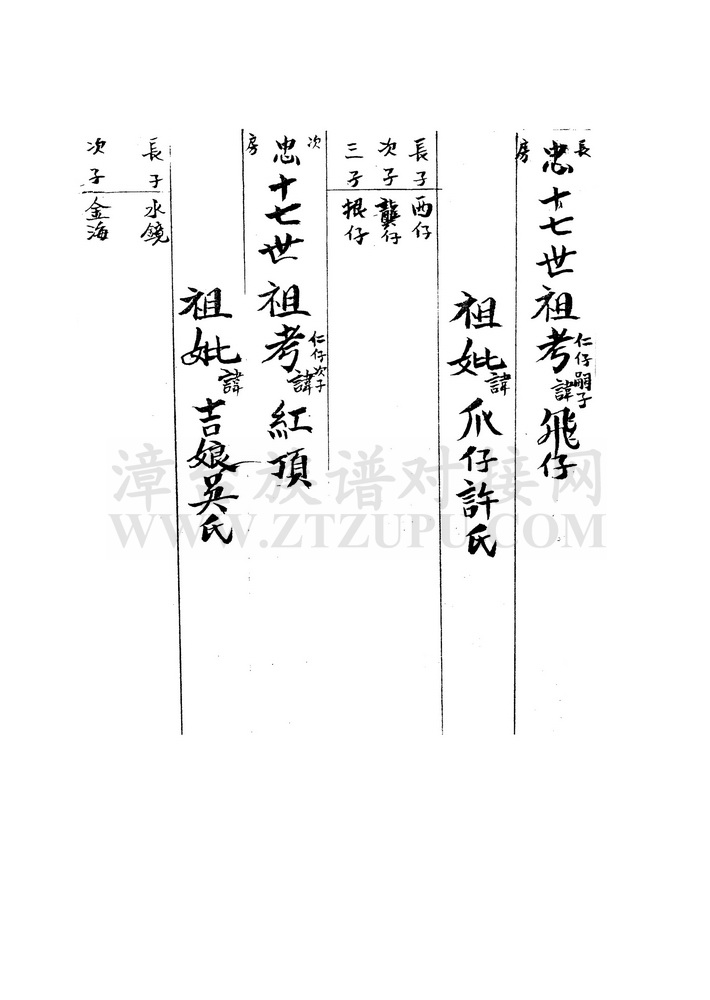 長房
忠十七世祖考諱飛仔
仁仔嗣子
祖妣諱爪仔許氏
長子西仔
次子龔仔
三子根仔
次房
忠十七世祖考諱紅頂
仁仔次子
祖妣諱吉娘吳氏
長子水鏡
次子金海
漳台族谱对接网
WWW.ZTZUPU.COM